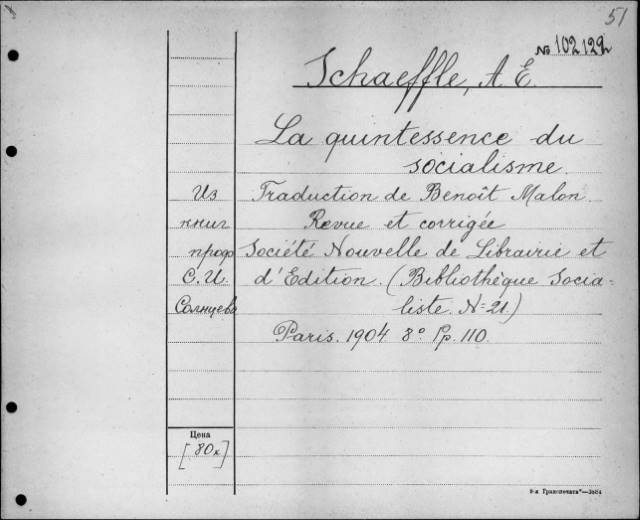 51
№ 102129
Schaeffle, A. E.
La quintessence du
socialisme.
Из Traduction de Benoît Malon
книг Revue et corrigée
проф Société Nouvelle de Librairie et
С. И. d'Edition. (Bibliothèque Socia-
Солнцева liste. N=21.)
Paris. 1904 8° Pp. 110.
Цена
[80к]